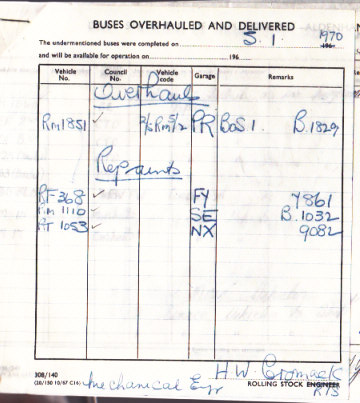 BUSES OVERHAULED AND DELIVERED
The undermentioned buses were completed on 5. 1. 1970 196
and will be available for operation on 196
Vehicle No. Council No. Vehicle code Garage Remarks
Overhauls
Rm1851 ✓ 2/5Rm5/2 PR BoS 1. B.1829
Repaints
RF 368 ✓ FY 7861
Rm 1110 ✓ SE B.1032
RT 1053 ✓ NX 9082
308/140
(20/150 10/67 C16) Mechanical Eng H W Cromack
ROLLING STOCK ENGINEER